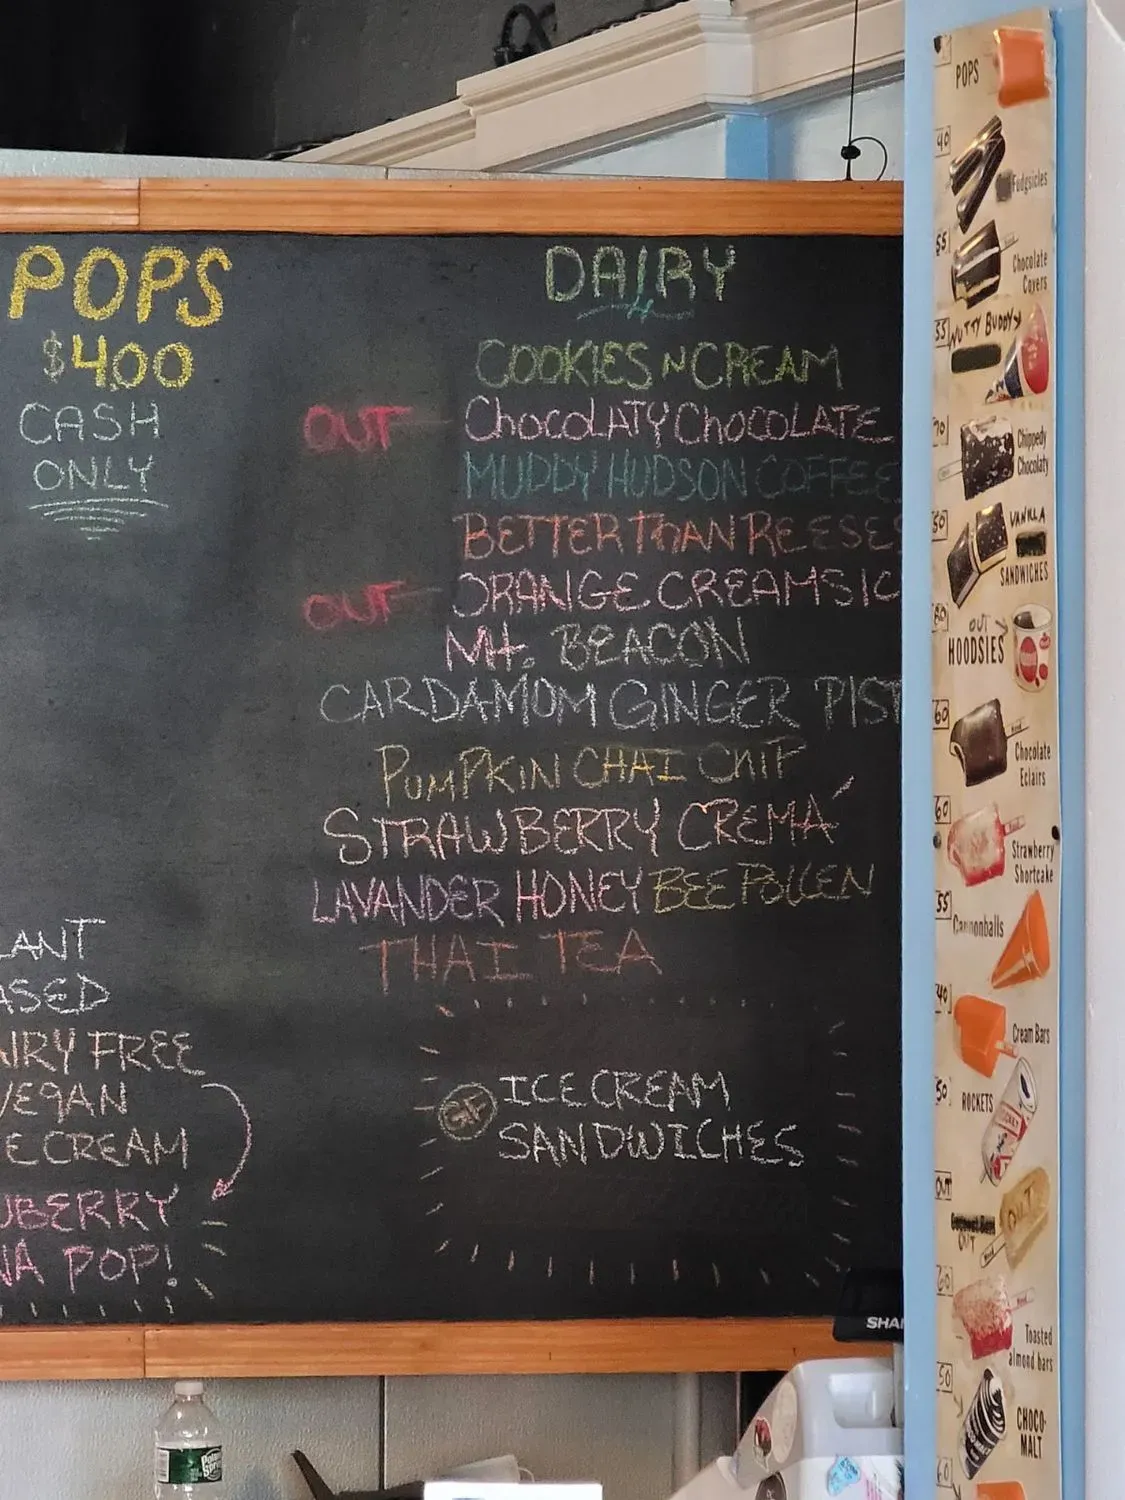 POPS
$4.00
CASH
ONLY
DAIRY
COOKIES N CREAM
OUT
CHOCOLATY CHOCOLATE
MUDDY HUDSON COFFEE
BETTER THAN REESES
OUT
ORANGE CREAMSIC
Mt. BEACON
CARDAMOM GINGER PIST
PUMPKIN CHAI CHIP
STRAWBERRY CREMÁ
LAVANDER HONEY BEE POLLEN
THAI TEA
GF ICE CREAM
SANDWICHES
LANT
ASED
AIRY FREE
VEGAN
E CREAM
WBERRY
NA POP!
SHAR
POPS
40
Fudgsicles
55
Chocolate
Covers
55
NUTTY BUDDY
70
Chippedy
Chocolaty
50
VANILLA
SANDWICHES
80
OUT
HOODSIES
60
Chocolate
Eclairs
60
Strawberry
Shortcake
55
Cannonballs
40
Cream Bars
50
ROCKETS
OUT
OUT
OUT
60
Toasted
almond bars
50
CHOCO-
MALT
Poland
Spring